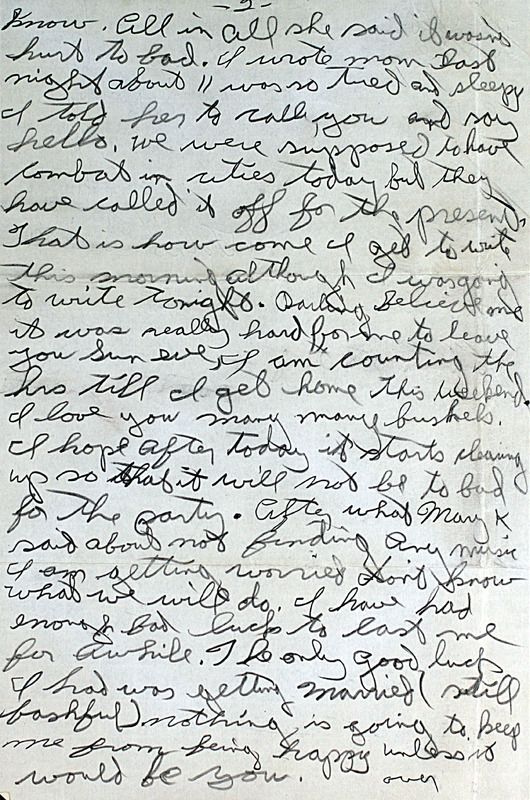 - 2 -
Know. All in all she said it wasn't
hurt to bad. I wrote mom last
night about 11 was so tired and sleepy
I told her to call you and say
hello. We were supposed to have
combat in cities today but they
have called it off for the present.
That is how come I get to write
this morning although I was going
to write tonight. Darling believe me
it was really hard for me to leave
you Sun eve, I am counting the
hrs till I get home this weekend.
I love you many many bushels.
I hope after today it starts clearing
up so that it will not be to bad
for the party. After what Mary K
said about not finding any music
I am getting worried don't know
what we will do. I have had
enough bad luck to last me
for awhile. The only good luck
I had was getting married (still
bashful) nothing is going to keep
me from being happy unless it
would be you. over